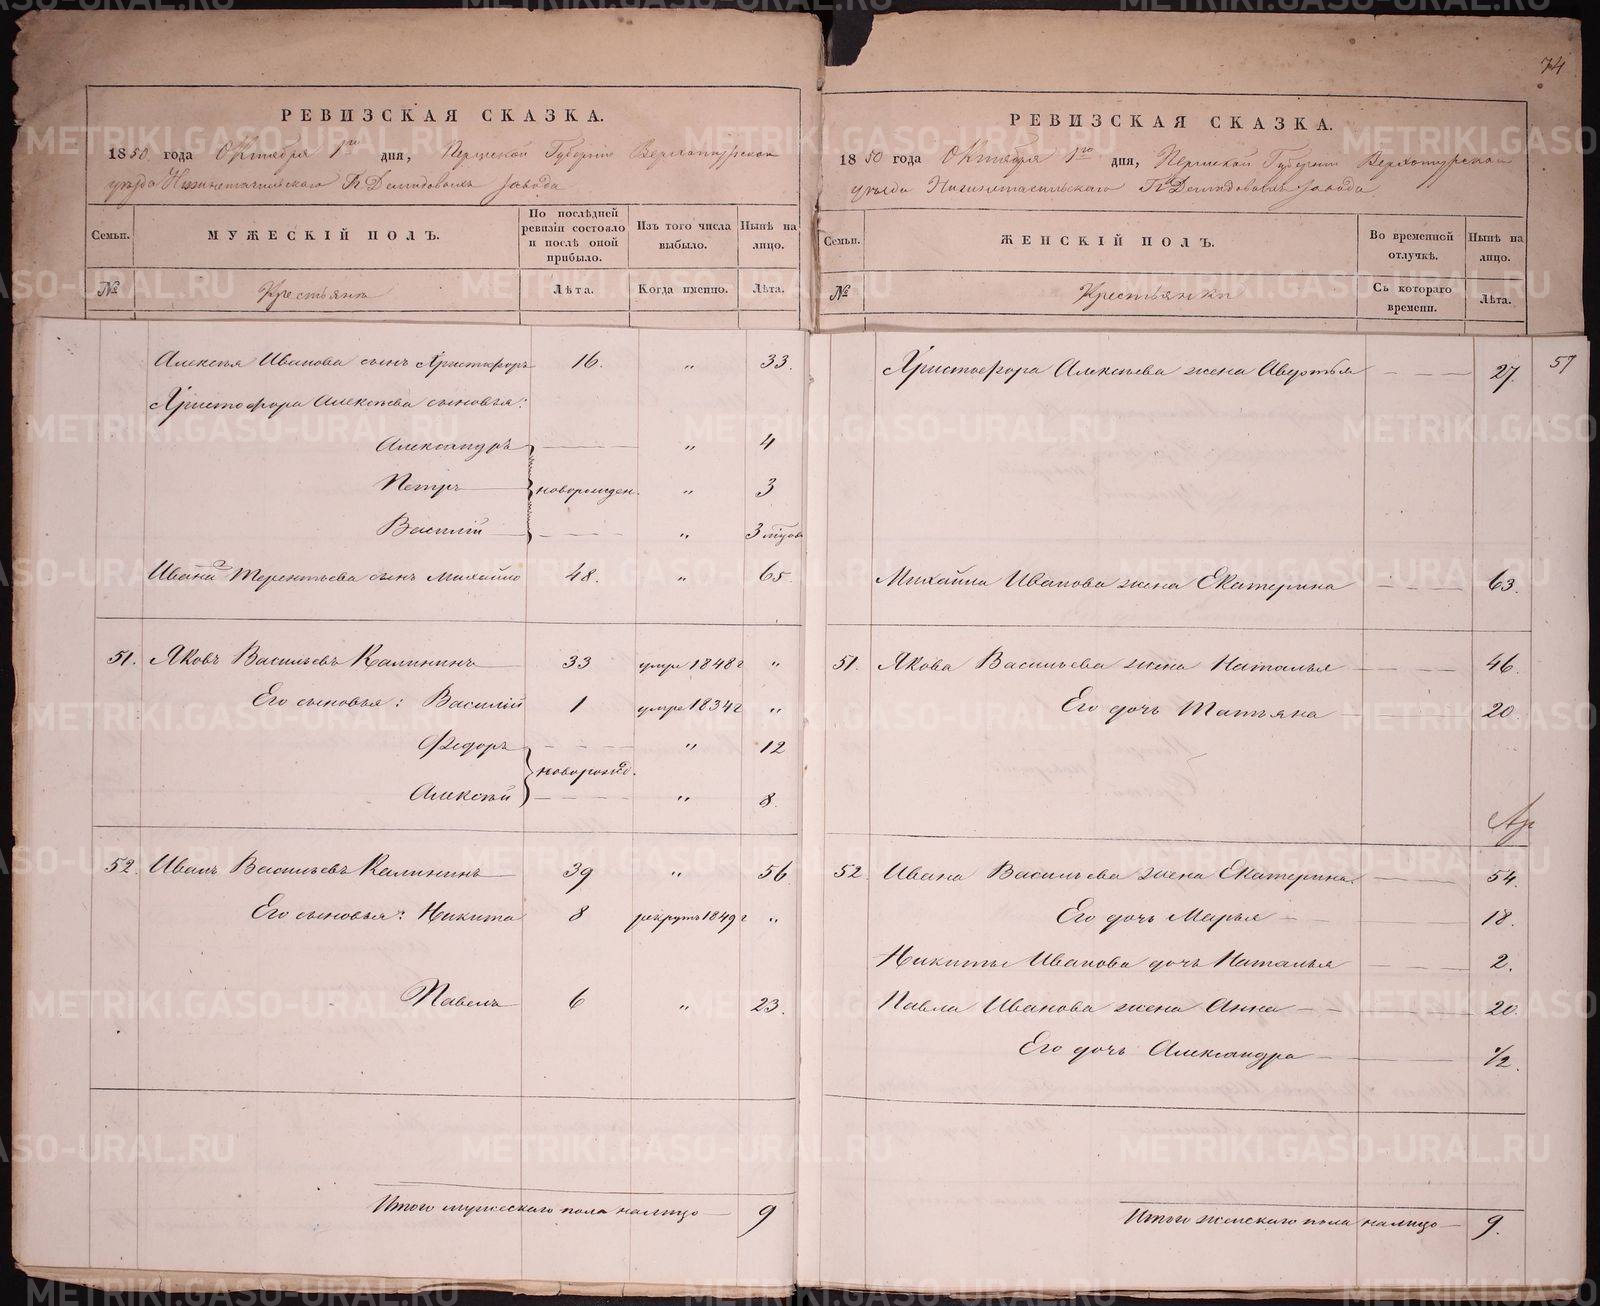 74
РЕВИЗСКАЯ СКАЗКА.
1850 года Октября 1го дня, Пермской Губерніи Верхотурскаго
уѣзда Нижнетагильскаго Гг Демидовыхъ завода
Семьи.
МУЖЕСКІЙ ПОЛЪ.
По послѣдней ревизіи состояло и послѣ оной прибыло.
Изъ того числа выбыло.
Нынѣ на лицо.
№
Крестьяне
Лѣта.
Когда именно.
Лѣта.
Алексѣя Иванова сынъ Христофоръ 16. „ 33.
Христофора Алексѣева сыновья:
Александръ — „ 4
Петръ новорожден. „ 3
Василій — „ 3 мѣсяц
Ивана Терентьева сынъ Михайло 48. „ 65.
51. Яковъ Васильевъ Калининъ 33 умре 1848г „
Его сыновья: Василій 1 умре 1834г „
Федоръ — „ 12
новорожд.
Алексѣй — „ 8.
52. Иванъ Васильевъ Калининъ 39 „ 56
Его сыновья: Никита 8 рекрутъ 1849г „
Павелъ 6 „ 23.
Итого мужескаго пола налицо — 9
РЕВИЗСКАЯ СКАЗКА.
1850 года Октября 1го дня, Пермской Губерніи Верхотурскаго
уѣзда Нижнетагильскаго Гг Демидовыхъ завода
Семьи.
ЖЕНСКІЙ ПОЛЪ.
Во временной отлучкѣ.
Нынѣ на лицо.
№
Крестьянки
Съ котораго времени.
Лѣта.
57
Христофора Алексѣева жена Авдотья — 27.
Михайла Иванова жена Екатерина — 63.
51. Якова Васильева жена Наталья — 46
Его дочь Татьяна — 20.
52. Ивана Васильева жена Екатерина — 54.
Его дочь Марья — 18.
Никиты Иванова дочь Наталья — 2.
Павла Иванова жена Анна — 20.
Его дочь Александра — 1/2.
Итого женскаго пола налицо — 9.
METRIKI.GASO-URAL.RU